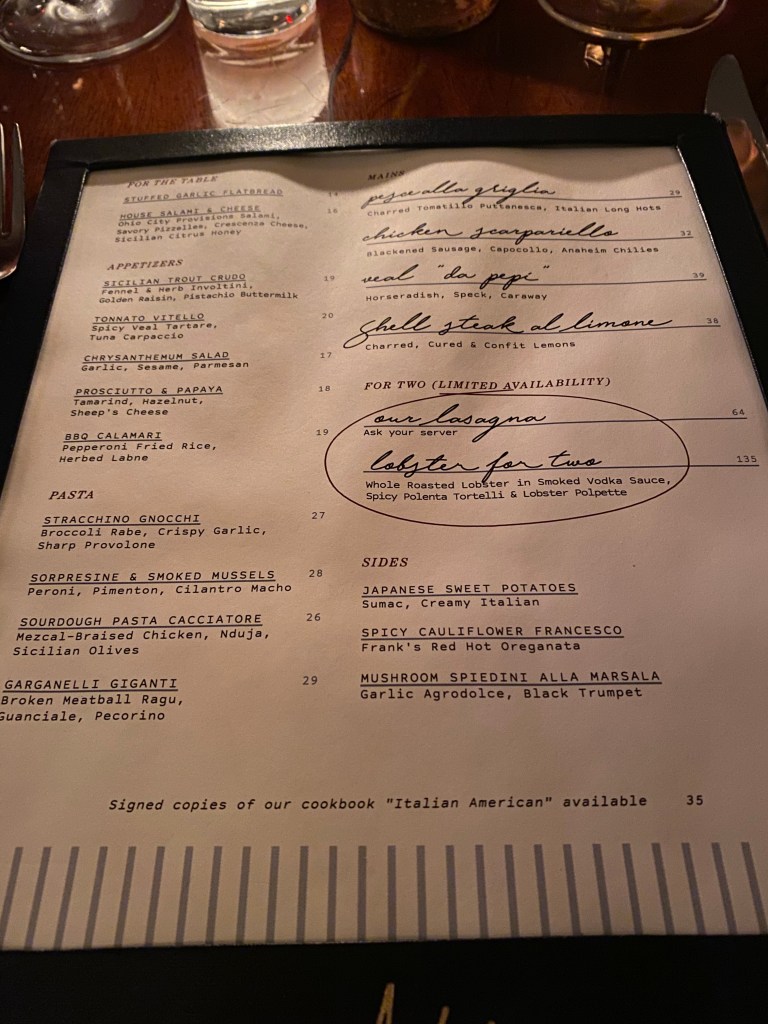 FOR THE TABLE
STUFFED GARLIC FLATBREAD 14
HOUSE SALAMI & CHEESE 16
Ohio City Provisions Salami,
Savory Pizzelles, Crescenza Cheese,
Sicilian Citrus Honey
APPETIZERS
SICILIAN TROUT CRUDO 19
Fennel & Herb Involtini,
Golden Raisin, Pistachio Buttermilk
TONNATO VITELLO 20
Spicy Veal Tartare,
Tuna Carpaccio
CHRYSANTHEMUM SALAD 17
Garlic, Sesame, Parmesan
PROSCIUTTO & PAPAYA 18
Tamarind, Hazelnut,
Sheep's Cheese
BBQ CALAMARI 19
Pepperoni Fried Rice,
Herbed Labne
PASTA
STRACCHINO GNOCCHI 27
Broccoli Rabe, Crispy Garlic,
Sharp Provolone
SORPRESINE & SMOKED MUSSELS 28
Peroni, Pimenton, Cilantro Macho
SOURDOUGH PASTA CACCIATORE 26
Mezcal-Braised Chicken, Nduja,
Sicilian Olives
GARGANELLI GIGANTI 29
Broken Meatball Ragu,
Guanciale, Pecorino
MAINS
pesce alla griglia 29
Charred Tomatillo Puttanesca, Italian Long Hots
chicken scarpariello 32
Blackened Sausage, Capocollo, Anaheim Chilies
veal "da pepi" 39
Horseradish, Speck, Caraway
shell steak al limone 38
Charred, Cured & Confit Lemons
FOR TWO (LIMITED AVAILABILITY)
our lasagna 64
Ask your server
lobster for two 135
Whole Roasted Lobster in Smoked Vodka Sauce,
Spicy Polenta Tortelli & Lobster Polpette
SIDES
JAPANESE SWEET POTATOES
Sumac, Creamy Italian
SPICY CAULIFLOWER FRANCESCO
Frank's Red Hot Oreganata
MUSHROOM SPIEDINI ALLA MARSALA
Garlic Agrodolce, Black Trumpet
Signed copies of our cookbook "Italian American" available 35